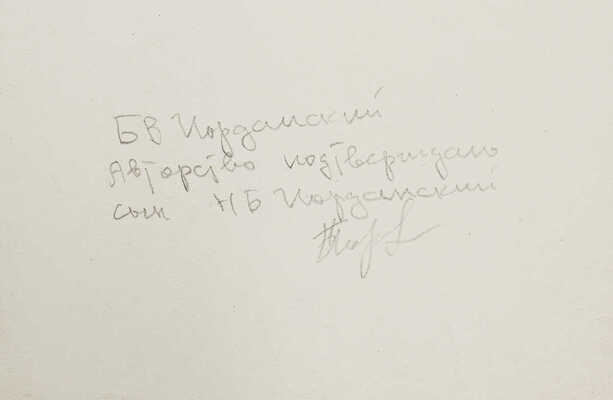 БВ Иорданский
Авторство подтверждаю
сын НБ Иорданский